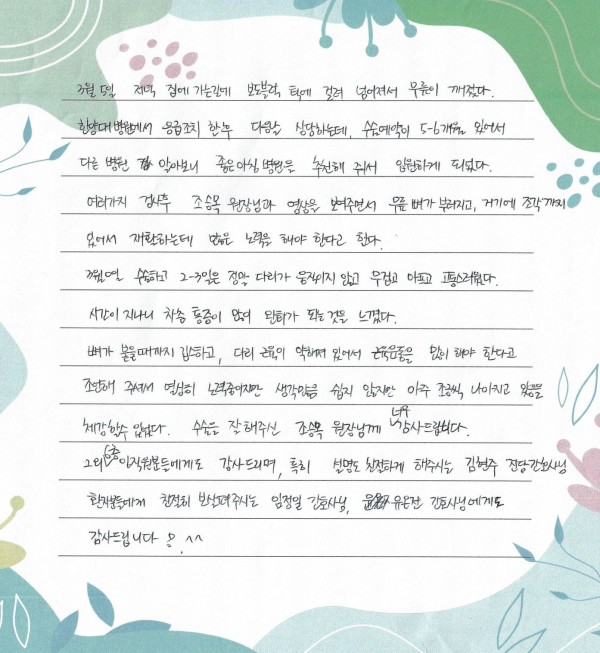 3월 5일 저녁 집에 가는길에 보도블럭 턱에 걸려 넘어져서 무릎이 깨졌다.
한양대 병원에서 응급조치 한후 다음날 상담하는데, 수술예약이 5-6개월 있어서
다른 병원 알아보니 좋은아침 병원을 추천해 줘서 입원하게 되었다.
여러가지 검사후 조승목 원장님과 영상을 보여주면서 무릎 뼈가 부러지고, 거기에 조각까지
있어서 재활하는데 많은 노력을 해야 한다고 한다.
수술하고 2-3일은 정말 다리가 움직이지 않고 무겁고 아프고 고통스러웠다.
시간이 지나니 차츰 통증이 없어 되는 것을 느꼈다.
뼈가 붙을때까지 깁스하고, 다리 근육이 약해져 있어서 근육운동을 많이 해야 한다고
조언해 주셔서 열심히 노력중이지만 생각만큼 쉽지 않지만 아주 조금씩 나아지고 있음을
체감할수 있었다. 수술을 잘 해주신 조승목 원장님께 너무 감사드립니다.
그외 6층 직원분들에게도 감사드리며, 특히 설명도 친절하게 해주시는 김현주 전담간호사님
환자분들에게 친절히 보살펴주시는 임정일 간호사님, 유은진 간호사님에게도
감사드립니다 ^^